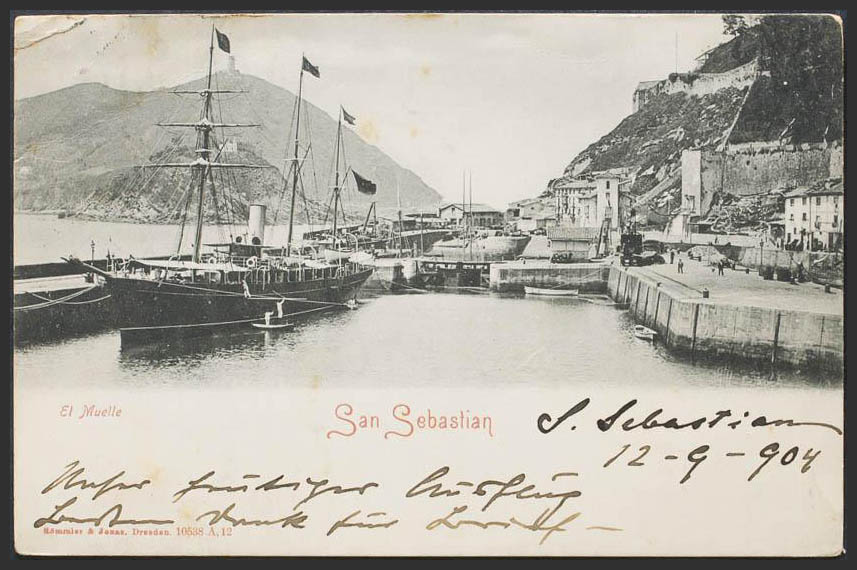 El Muelle
San Sebastian
S. Sebastian
12-9-904
Unser heutiger Ausflug
Besten Dank für Brief –
Römmler & Jonas, Dresden. 10538 A, 12